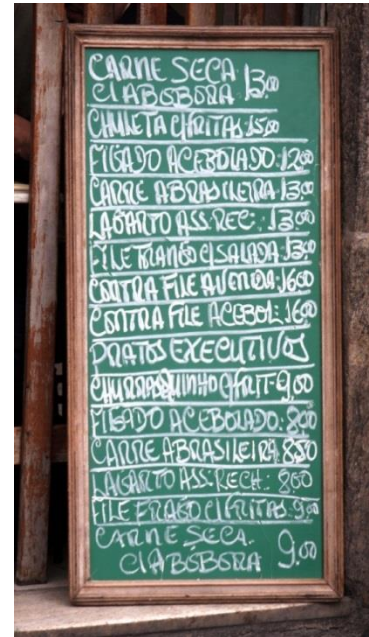 CARNE SECA
C/ABOBORA 13,00
CHULETA C/FRITAS: 15,00
FIGADO ACEBOLADO: 12,00
CARRE ABRASILEIRA 13,00
LAGARTO ASS. REC: 13,00
FILE FRANGO C/SALADA 13,00
CONTRA FILE AVENIDA: 16,00
CONTRA FILE ACEBOL: 16,00
PRATOS EXECUTIVOS
CHURRASQUINHO C/FRIT- 9,00
FIGADO ACEBOLADO: 8,00
CARRE ABRASILEIRA 8,50
LAGARTO ASS. RECH.: 8,00
FILE FRAGO C/FRITAS: 9,00
CARNE SECA.
C/ABOBORA 9,00